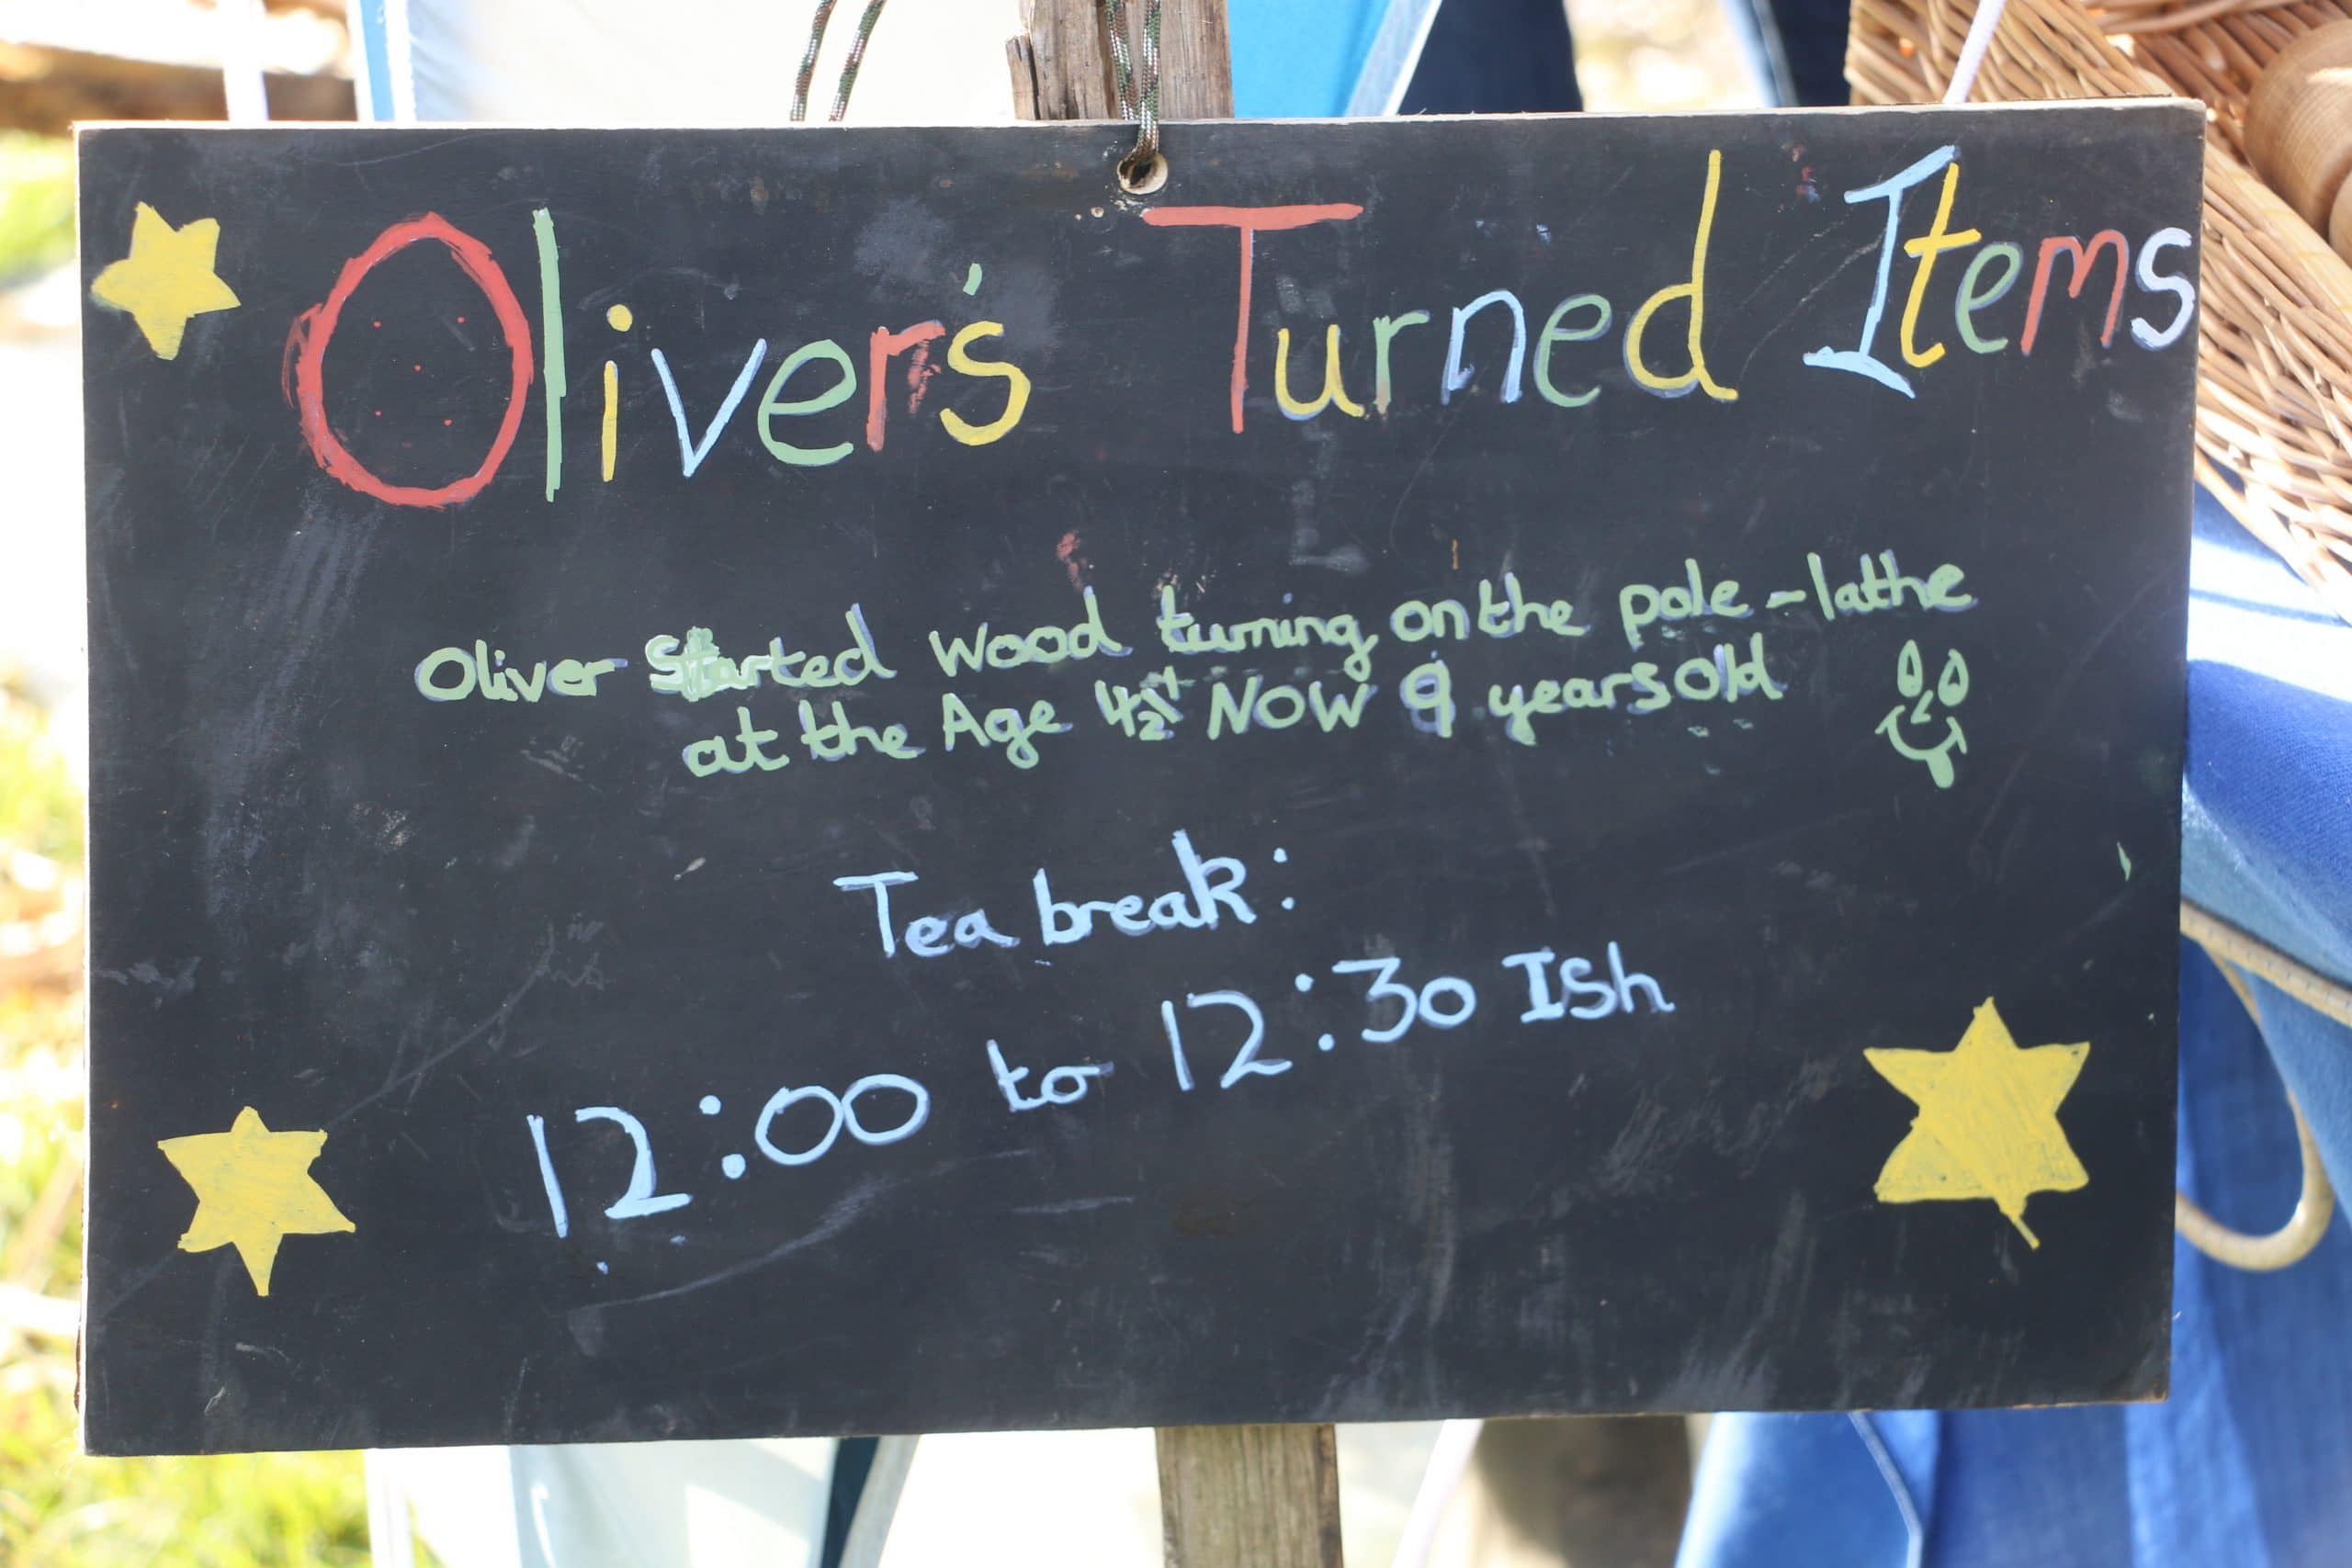 Oliver's Turned Items
Oliver Started wood turning on the pole-lathe
at the Age 4½ NOW 9 years old
Tea break:
12:00 to 12:30 Ish